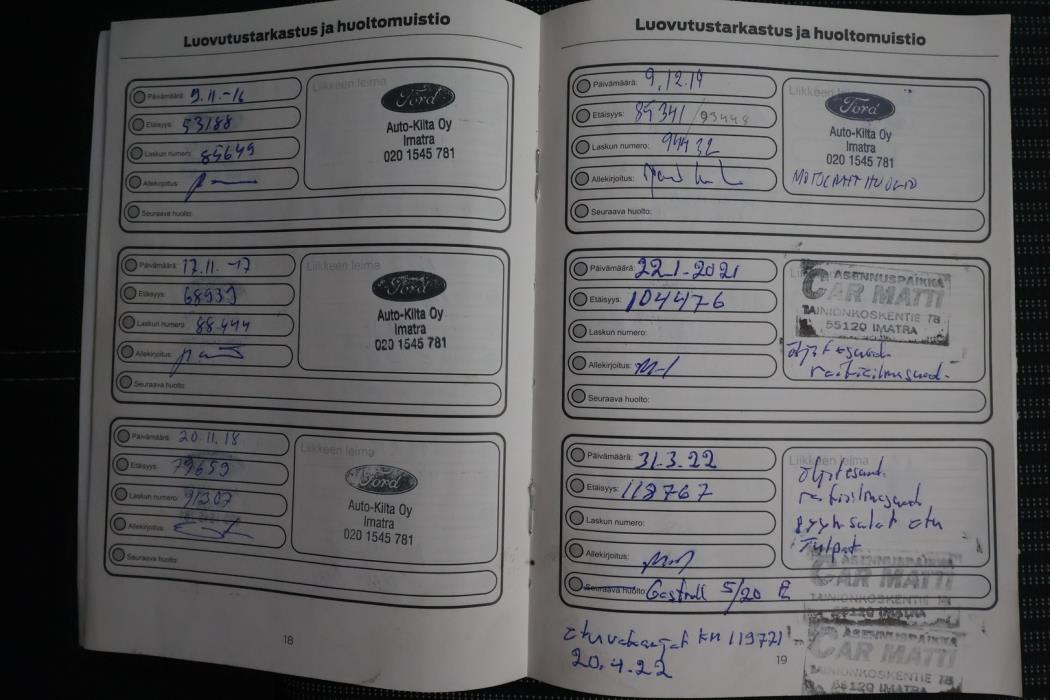 Luovutustarkastus ja huoltomuistio
Päivämäärä: 9.11.-16
Etäisyys: 53188
Laskun numero: 85649
Allekirjoitus:
Seuraava huolto:
Liikkeen leima
Ford
Auto-Kilta Oy
Imatra
020 1545 781
Päivämäärä: 17.11.-17
Etäisyys: 68939
Laskun numero: 88444
Allekirjoitus:
Seuraava huolto:
Liikkeen leima
Ford
Auto-Kilta Oy
Imatra
020 1545 781
Päivämäärä: 20.11.18
Etäisyys: 79659
Laskun numero: 91307
Allekirjoitus:
Seuraava huolto:
Liikkeen leima
Ford
Auto-Kilta Oy
Imatra
020 1545 781
18
Luovutustarkastus ja huoltomuistio
Päivämäärä: 9.12.19
Etäisyys: 85341 / 93448
Laskun numero: 94432
Allekirjoitus:
Seuraava huolto:
Liikkeen
Ford
Auto-Kilta Oy
Imatra
020 1545 781
Päivämäärä: 22.1.2021
Etäisyys: 104476
Laskun numero:
Allekirjoitus:
Seuraava huolto:
ASENNUSPAIKKA
CAR MATTI
TAINIONKOSKENTIE 78
55120 IMATRA
Päivämäärä: 31.3.22
Etäisyys: 118767
Laskun numero:
Allekirjoitus:
Seuraava huolto: Castroll 5/20
Liikkeen leima
Tulpat
CAR MATTI
TAINIONKOSKENTIE
55120 IMATRA
km 119721
20.4.22
19
ASENNUSPAIKKA
CAR MATTI
TAINIONKOSKENTIE 78
55120 IMATRA